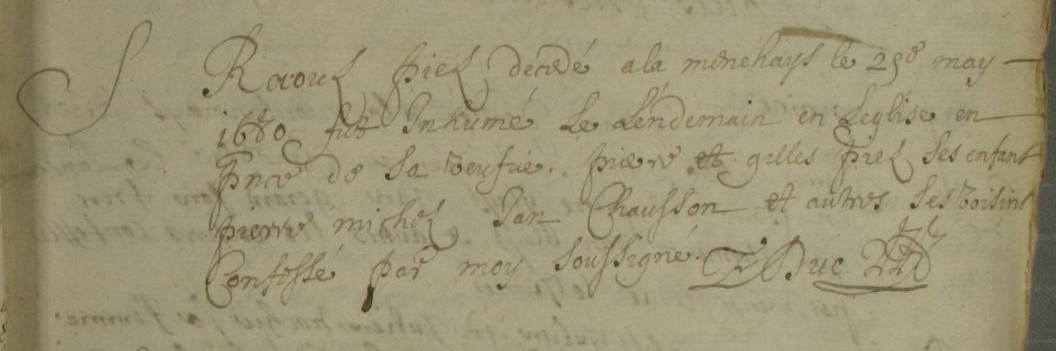 S Raoul piel decedé a la menehays le 29e may
1680 fut Inhumé Le Lendemain en Leglise en
pnce de sa veufue, pierre et gilles piel ses enfant
pierre michel Jan Chausson et autres ses voisins
Confessé par moy soussigné. Duc